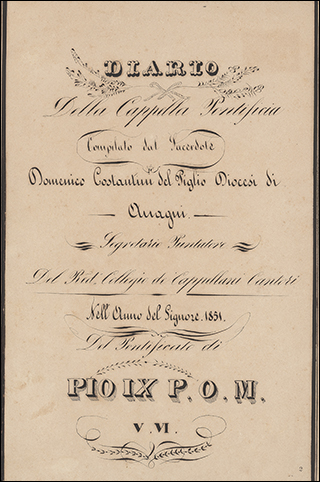 DIARIO
Della Cappella Pontificia
Compilato dal Sacerdote
Domenico Costantini del Piglio Diocesi di
Anagni.
Segretario Puntatore
Del Rēd. Collegio de Cappellani Cantori
Nell'Anno del Signore 1851.
Del Pontificato di
PIO IX P. O. M.
V. VI.